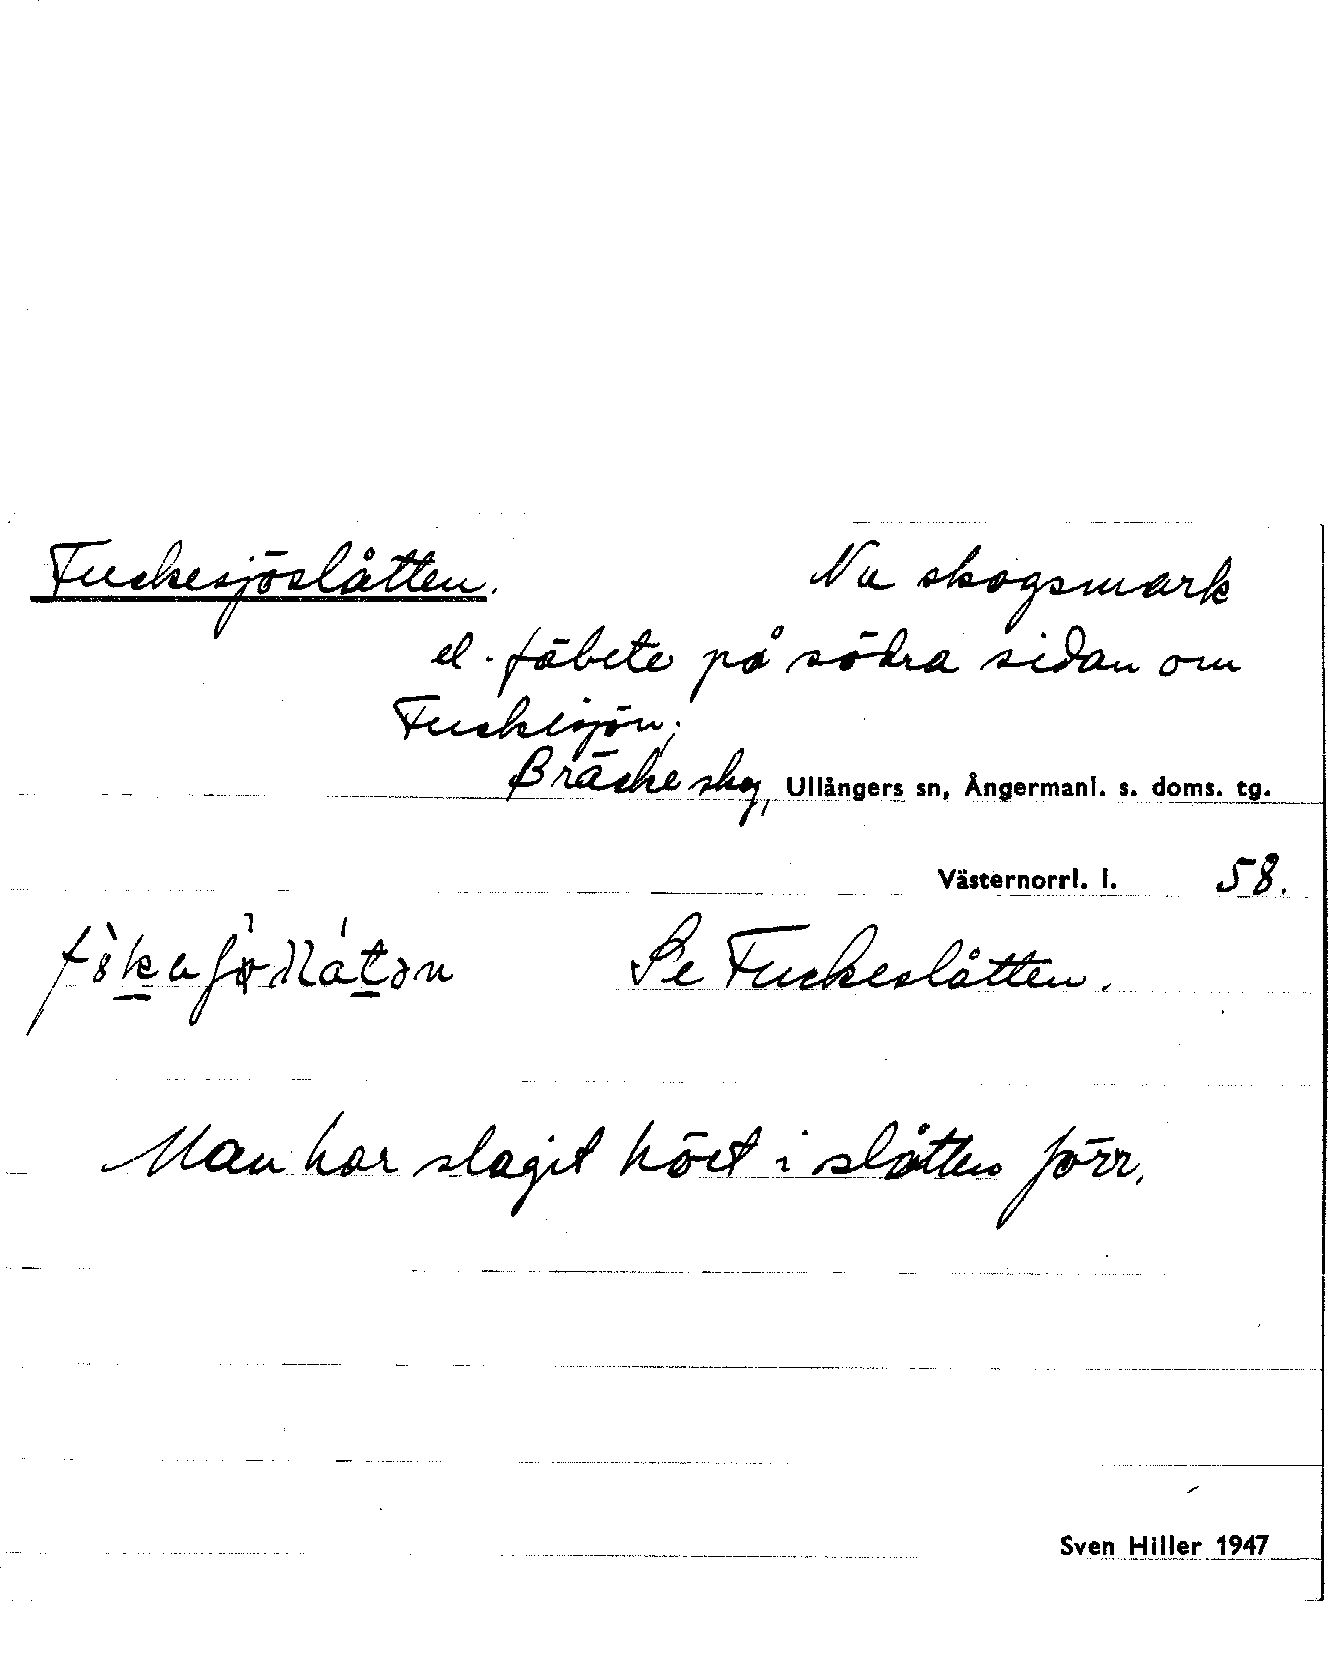 Fuckesjöslåtten. Nu skogsmark
el. fäbete på södra sidan om
Fuckesjön;
Bräcke skog, Ullångers sn, Ångermanl. s. doms. tg.
Västernorrl. l. 58.
Se Fuckeslåtten.
Man har slagit höet i slåtten förr.
Sven Hiller 1947